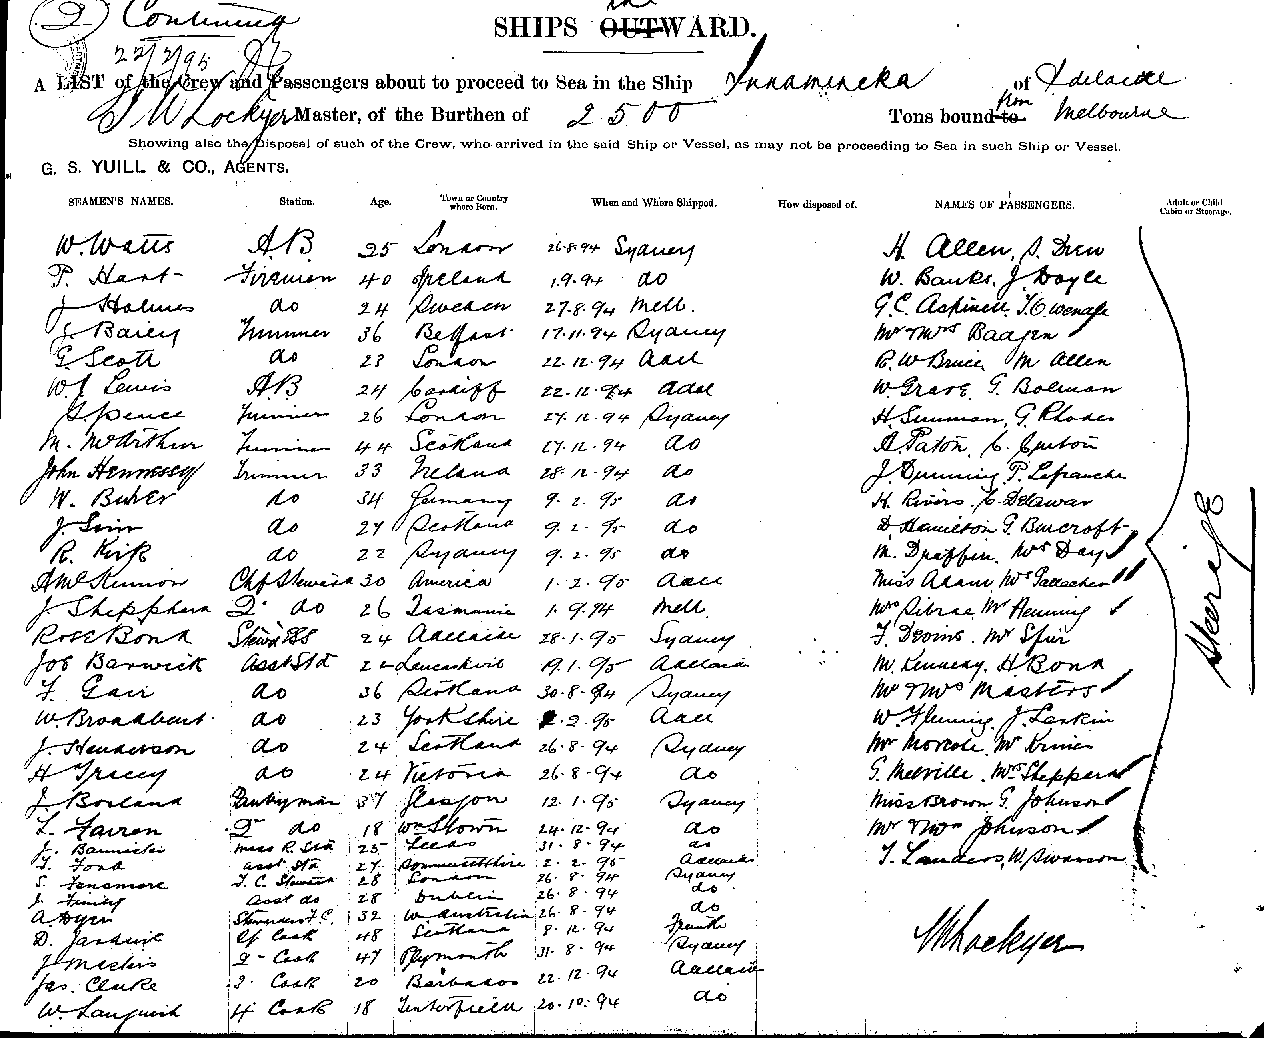 2 Continuing
22/2/95
SHIPS OUTWARD.
A LIST of the Crew and Passengers about to proceed to Sea in the Ship Innamincka of Adelaide
J W Lockyer Master, of the Burthen of 2500 Tons bound to from Melbourne
Showing also the Disposal of such of the Crew, who arrived in the said Ship or Vessel, as may not be proceeding to Sea in such Ship or Vessel.
G. S. YUILL & CO., AGENTS.
SEAMEN'S NAMES. Station. Age. Town or Country where Born. When and Where Shipped. How disposed of. NAMES OF PASSENGERS. Adult or Child Cabin or Steerage.
W. Watts AB 25 London 26.8.94 Sydney H Allen, S. Drew
P. Hart Fireman 40 Ireland 1.9.94 do W. Banks, J Doyle
J Holmes do 24 Sweden 27.8.94 Melb. G.C. Aspinell,
J. Bailey Trimmer 36 Belfast 17.11.94 Sydney Mr & Mrs Baagen
G. Scott do 23 London 22.12.94 Adel R. W Bruce, M Allen
W J Lewis AB 24 Cardiff 22.12.94 Adel W Grove, G. Bolman
J Spence Trimmer 26 London 27.12.94 Sydney H. Sunman, G. Rhodes
M. McArthur Trimmer 44 Scotland 27.12.94 do A Paton, C.
John Hennessy Trimmer 33 Ireland 28.12.94 do J. Dunning P. Lefranche
W. Buker do 34 Germany 9.2.95 do H. Rivers, C. Delawar
J. Sinn do 27 Scotland 9.2.95 do D. Hamilton G. Bancroft
R. Kirk do 22 Sydney 9.2.95 do M. Mrs Day
A McKinnon Chf Steward 30 America 1.2.95 Adel Miss Adam, Mrs Gallacher
J Shepherd 2nd do 26 Tasmania 1.9.94 Melb. Mrs Mr Henning
Rose Bond Stewdess 24 Adelaide 28.1.95 Sydney F. Devins, Mr Spier
Job Barwick Asst Std 22 Lancashire 19.1.95 Adelaide M. Kennedy. H Bond
F. Gair do 36 Scotland 30.8.94 Sydney Mr & Mrs Masters
W. Broadbent do 23 Yorkshire 2.2.95 Adel W. Fleming, J. Larkin
J. Henderson do 24 Scotland 26.8.94 Sydney Mr Mr
H Tracey do 24 Victoria 26.8.94 do G. Melville. Mrs Shepperd
J Borland Pantryman 37 Glasgow 12.1.95 Sydney Miss Brown G. Johnson
L. Farren 2nd do 18 Wmstown 24.12.94 do Mr & Mrs Johnson
J. Bannister Mess R. Std 25 Leeds 31.8.94 do T. Landers, W. Swanson
T. Ford Asst Std 27 Sommersetshire 2.2.95 Adelaide
S. Fensmore F. C. Steward 28 London 26.8.94 Sydney
J. Asst do 28 Dublin 26.8.94 do
A. Dyer Stewardess F.C. 32 W Australia 26.8.94 do
D. Jardine Cf Cook 48 Scotland 8.12.94
J Masters 2nd Cook 47 Plymouth 31.8.94 Sydney
Jas. Clarke 3 Cook 20 Barbados 22.12.94 Adelaide
W. Sanguish 4 Cook 18 Tenterfield 20.10.94 do
Steerage
J W Lockyer